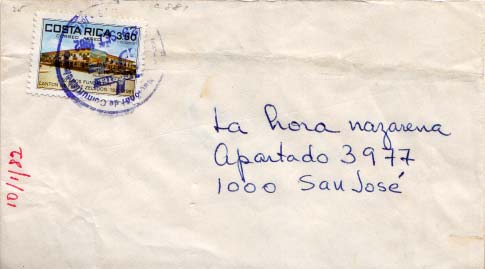 COSTA RICA
CORREO AEREO 3.60
La hora nazarena
Apartado 3977
1000 San José
10/1/82